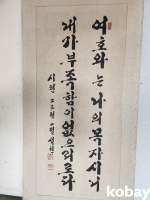 여호와는 나의 목자시니
내가 부족함이 없으리로다
시편 二三편 一절
kobay